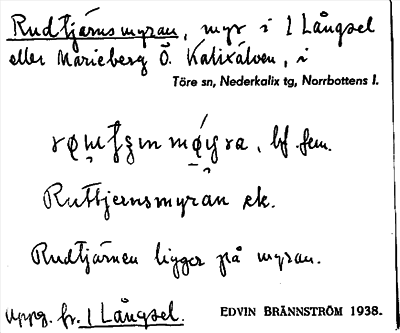 Rudtjärnsmyran, myr i 1 Långsel
eller Marieberg Ö. Kalixälven, i
Töre sn, Nederkalix tg, Norrbottens l.
bf. fem.
Ruttjernsmyran ek.
Rudtjärnen ligger på myran.
Uppg. fr. 1 Långsel.
EDVIN BRÄNNSTRÖM 1938.